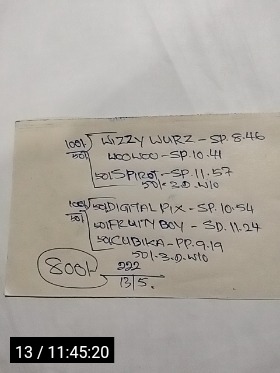 100/- WIZZY WURZ - SP. 8.46
50/- WOOWOO - SP. 10.41
50/ SPIROT - SP. 11.57
50/- 3.D. W/O
100/- 50/ DIGITAL PIX - SP. 10.54
50/- 50/ FRUITY BOY - SD. 11.24
50/ CUBIKA - PP. 9.19
50/- 3.D. W/O
800/- 222
13/5.
13 / 11:45:20